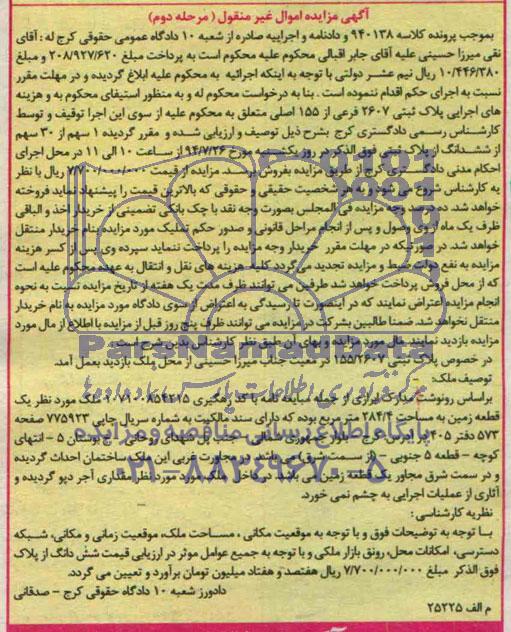 آگهی مزایده اموال غیر منقول (مرحله دوم)
بموجب پرونده کلاسه ۹۴۰۱۳۸ و دادنامه و اجراییه صادره از شعبه ۱۰ دادگاه عمومی حقوقی کرج له : آقای
نقی میرزا حسینی علیه آقای جابر اقبالی محکوم علیه محکوم است به پرداخت مبلغ ۲۰۸/۹۲۷/۶۲۰ و مبلغ
۱۰/۴۴۶/۳۸۰ ریال نیم عشر دولتی با توجه به اینکه اجرائیه به محکوم علیه ابلاغ گردیده و در مهلت مقرر
نسبت به اجرای حکم اقدام ننموده است . بنا به درخواست محکوم له و به منظور استیفای محکوم به و هزینه
های اجرایی پلاک ثبتی ۲۶۰۷ فرعی از ۱۵۵ اصلی متعلق به محکوم علیه از سوی این اجرا توقیف و توسط
کارشناس رسمی دادگستری کرج بشرح ذیل توصیف و ارزیابی شده و مقرر گردیده ۱ سهم از ۳۰ سهم
از ششدانگ از پلاک ثبتی فوق الذکر در روز یکشنبه مورخ ۹۴/۷/۲۶ از ساعت ۱۰ الی ۱۱ در محل اجرای
احکام مدنی دادگستری کرج از طریق مزایده بفروش برسد. مزایده از قیمت ۷/۷۰۰/۰۰۰/۰۰۰ ریال با نظر
به کارشناس شروع می شود و به هر شخصیت حقیقی و حقوقی که بالاترین قیمت را پیشنهاد نماید فروخته
خواهد شد. ده درصد وجه مزایده فی المجلس بصورت وجه نقد یا چک بانکی تضمینی از خریدار اخذ و الباقی
ظرف یک ماه از وی وصول و پس از انجام مراحل قانونی و صدور حکم تملیک مورد مزایده بنام خریدار منتقل
خواهد شد. در صورتیکه در مهلت مقرر خریدار وجه مزایده را پرداخت ننماید سپرده وی پس از کسر هزینه
مزایده به نفع دولت ضبط و مزایده تجدید می گردد کلیه هزینه های نقل و انتقال به عهده محکوم علیه است
که از محل فروش پرداخت خواهد شد طرفین می توانند ظرف مدت یک هفته از تاریخ مزایده نسبت به نحوه
انجام مزایده اعتراض نمایند که در اینصورت تا رسیدگی به اعتراض از سوی دادگاه مورد مزایده به نام خریدار
منتقل نخواهد شد. ضمنا طالبین بشرکت در مزایده می توانند ظرف پنج روز قبل از مزایده با اطلاع از مال مورد
مزایده بازدید نمایند. مال مورد مزایده و بهای آن طبق نظر کارشناس بدین شرح است :
در خصوص پلاک ثبتی ۱۵۵/۲۶۰۷ در معیت جناب میرزا حسینی از محل ملک بازدید بعمل آمد.
توصیف ملک:
براساس رونوشت مدارک ابرازی از جمله مبایعه نامه با کد رهگیری ملک مورد نظر یک
قطعه زمین به مساحت ۲۸۴/۴ متر مربع بوده که دارای سند مالکیت به شماره سریال چاپی ۷۷۵۹۲۳ صفحه
۵۷۳ دفتر ۴۰۵ به آدرس کرج - بلوار جمهوری شمالی - جنب پل شهدای روحانی - بوستان ۵ - انتهای
کوچه - قطعه ۵ جنوبی - (از سمت شرق) می باشد. در مجاورت غربی این ملک ساختمان احداث گردیده
و در سمت شرق مجاور یک قطعه زمین می باشد. در داخل ملک مورد مورد نظر مقداری آجر دپو گردیده و
آثاری از عملیات اجرایی به چشم نمی خورد.
نظریه کارشناسی :
با توجه به توضیحات فوق و با توجه به موقعیت مکانی ، مساحت ملک، موقعیت زمانی و مکانی، شبکه
دسترسی، امکانات محل، رونق بازار ملکی و با توجه به جمیع عوامل موثر در ارزیابی قیمت شش دانگ از پلاک
فوق الذکر مبلغ ۷/۷۰۰/۰۰۰/۰۰۰ ریال هفتصد و هفتاد میلیون تومان برآورد و تعیین می گردد.
دادورز شعبه ۱۰ دادگاه حقوقی کرج - صدقانی
م الف ۲۵۲۲۵
ParsNamadData
پایگاه اطلاع رسانی مناقصه و مزایده
۰۲۱-۸۸۳۴۹۶۷۰-۵